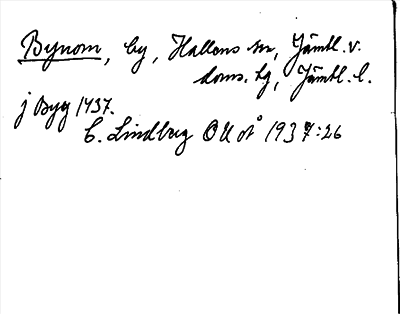 Bynom, by, Hallens sn, Jämtl. v.
doms. tg, Jämtl. l.
j Byg 1437.
C. Lindberg OU o Å 1937:26